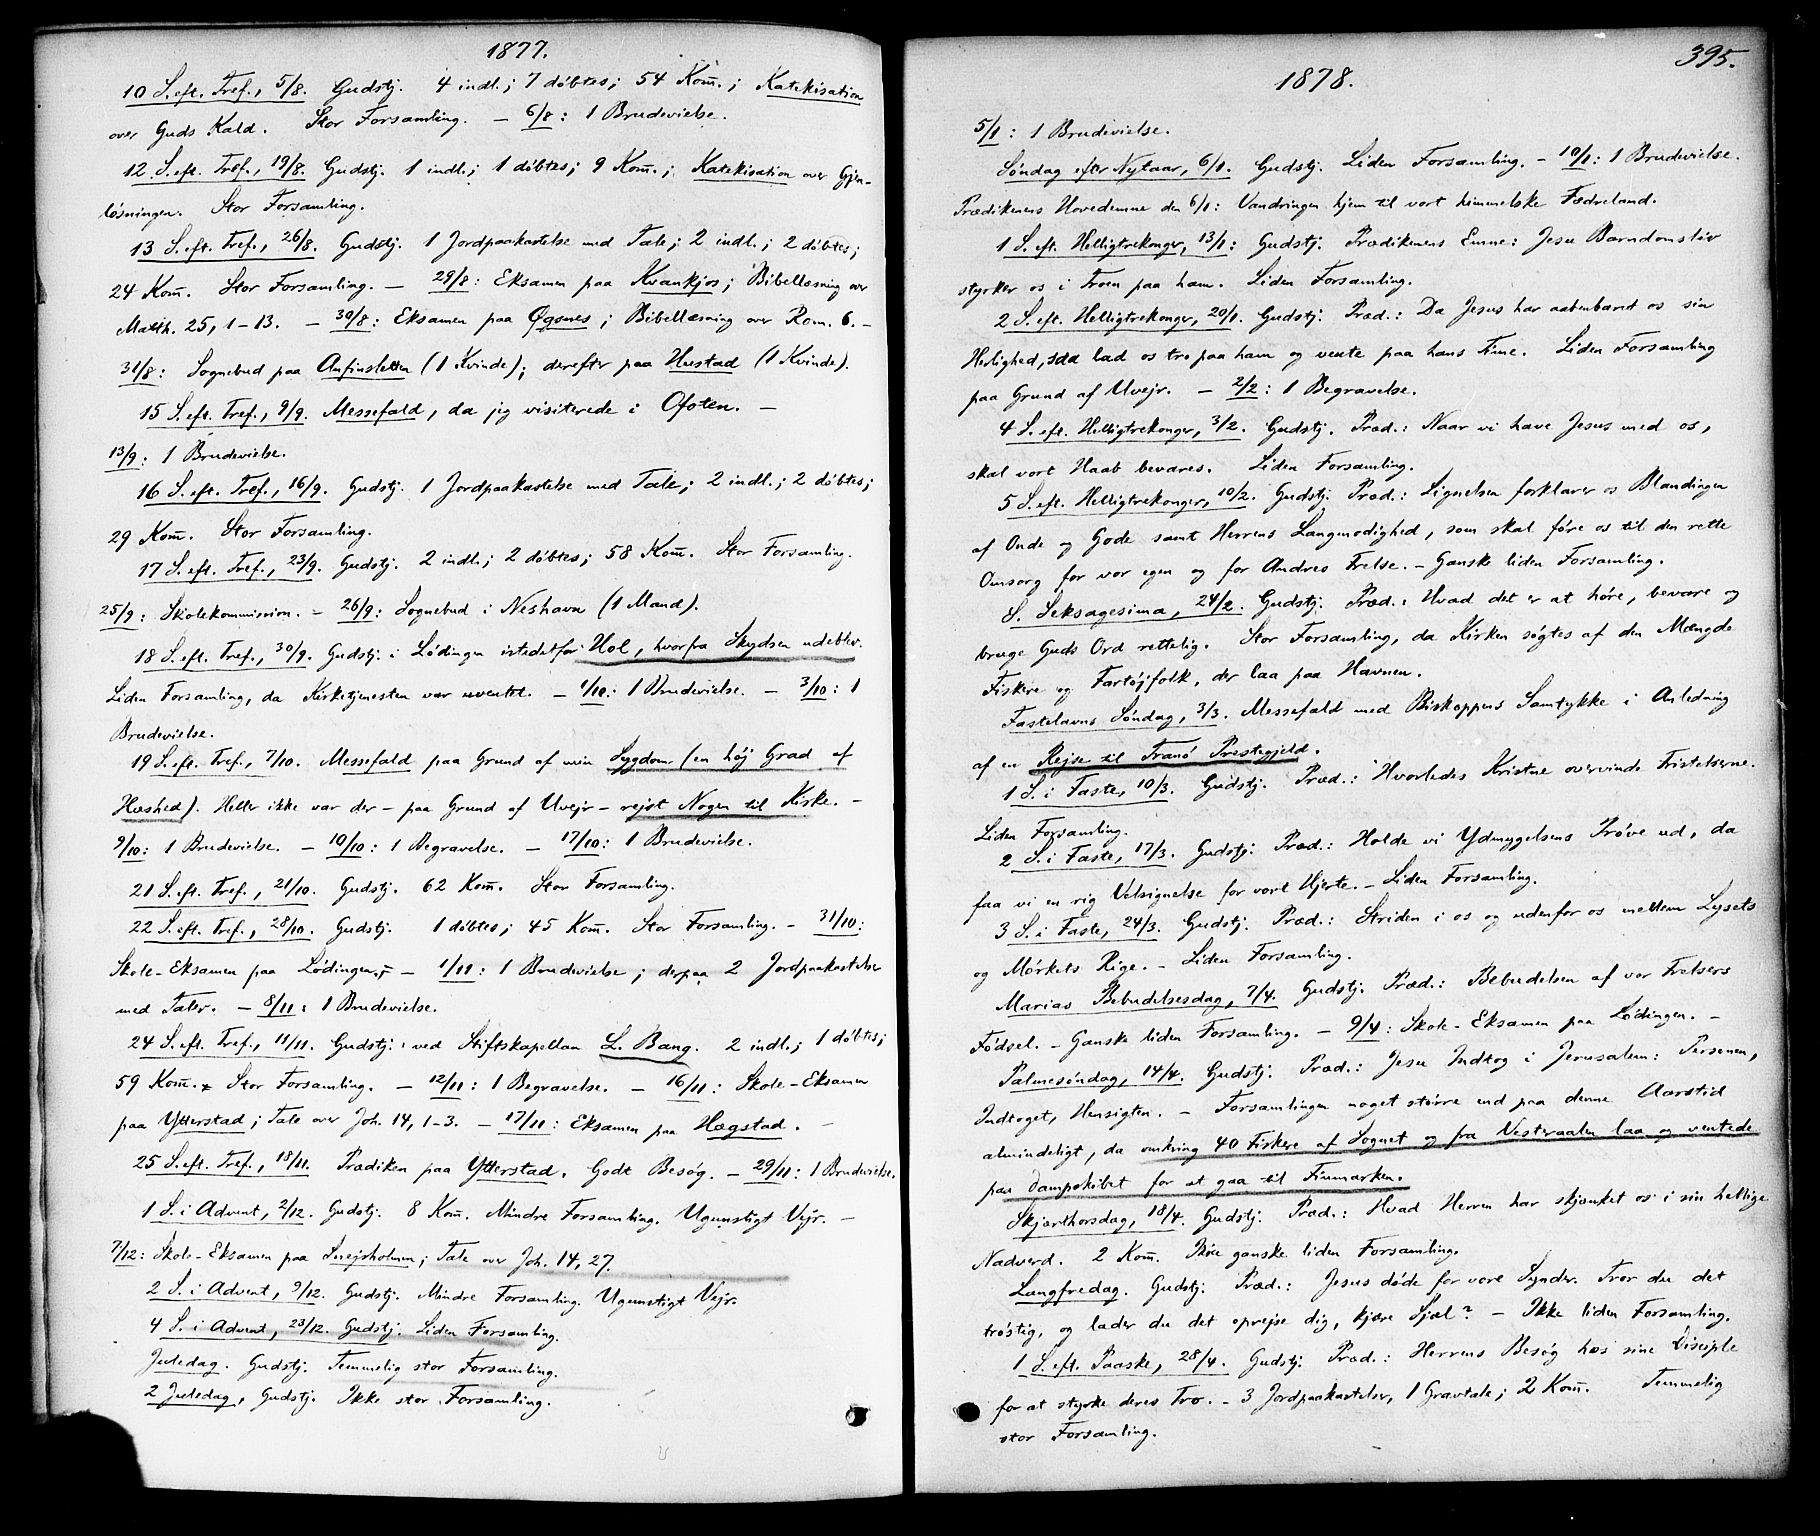 1877.
10 S. eft. Tref., 5/8. Gudstj. 4 indl.; 7 døbtes; 54 Kom̄.; Katekisation
over Guds Kald. Stor Forsamling. – 6/8: 1 Brudevielse.
12 S. eft. Tref., 19/8. Gudstj. 1 indl.; 1 døbtes; 9 Kom̄.; Katekisation over Gjen-
løsningen. Stor Forsamling.
13 S. eft. Tref., 26/8. Gudstj. 1 Jordpaakastelse med Tale; 2 indl.; 2 døbtes;
24 Kom̄. Stor Forsamling. – 29/8: Eksamen paa Kvankjos; Bibellæsning over
Matth. 25, 1-13. – 30/8: Eksamen paa Øgsnes; Bibellæsning over Rom. 6. –
31/8: Sognebud paa Anfinsletten (1 Kvinde); derefter paa Hustad (1 Kvinde).
15 S. eft. Tref., 9/9. Messefald, da jeg visiterede i Ofoten. –
13/9: 1 Brudevielse.
16 S. eft. Tref., 16/9. Gudstj. 1 Jordpaakastelse med Tale; 2 indl.; 2 døbtes;
29 Kom̄. Stor Forsamling.
17 S. eft. Tref., 23/9. Gudstj. 2 indl.; 2 døbtes; 58 Kom̄. Stor Forsamling.
25/9: Skolekommission. – 26/9: Sognebud i Neshavn (1 Mand).
18 S. eft. Tref., 30/9. Gudstj. i Lødingen istedetfor Hol, hvorfra Skydsen udeblev.
Liden Forsamling, da Kirketjenesten var uventet. – 1/10: 1 Brudevielse. – 3/10: 1
Brudevielse.
19 S. eft. Tref., 7/10. Messefald paa Grund af min Sygdom (en høj Grad af
Hæshed). Heller ikke var der – paa Grund af Uvejr – rejst Nogen til Kirke. –
9/10: 1 Brudevielse. – 10/10: 1 Begravelse. – 17/10: 1 Brudevielse.
21 S. eft. Tref., 21/10. Gudstj. 62 Kom̄. Stor Forsamling.
22 S. eft. Tref., 28/10. Gudstj. 1 døbtes; 45 Kom̄. Stor Forsamling. – 31/10:
Skole-Eksamen paa Lødingen. – 1/11: 1 Brudevielse; derpaa 2 Jordpaakastelser
med Taler. – 8/11: 1 Brudevielse.
24 S. eft. Tref., 11/11. Gudstj. ved Stiftskapellan L. Bang. 2 indl.; 1 døbtes;
59 Kom̄. Stor Forsamling. – 12/11: 1 Begravelse. – 16/11: Skole-Eksamen
paa Ytterstad; Tale over Joh. 14, 1-3. – 17/11: Eksamen paa Hægstad. –
25 S. eft. Tref., 18/11. Prædiken paa Ytterstad. Godt Besøg. – 29/11: 1 Brudevielse.
1 S. i Advent, 2/12. Gudstj. 8 Kom̄. Mindre Forsamling. Ugunstigt Vejr. –
7/12: Skole-Eksamen paa Svejsholmen; Tale over Joh. 14, 27.
2 S. i Advent, 9/12. Gudstj. Mindre Forsamling. Ugunstigt Vejr.
4 S. i Advent, 23/12. Gudstj. Liden Forsamling.
Juledag. Gudstj. Temmelig stor Forsamling.
2 Juledag, Gudstj. Ikke stor Forsamling.
395.
1878.
5/1: 1 Brudevielse.
Søndag efter Nytaar, 6/1. Gudstj. Liden Forsamling. – 10/1: 1 Brudevielse.
Prædikenens Hovedemne den 6/1: Vandringen hjem til vort himmelske Fædreland.
1 S. eft. Helligtrekonger, 13/1: Gudstj. Prædikenens Emne: Jesu Barndomsliv
styrker os i Troen paa ham. Liden Forsamling.
2 S. eft. Helligtrekonger, 20/1. Gudstj. Præd.: Da Jesus har aabenbaret os sin
Herlighed, saa lad os tro paa ham og vente paa hans Time. Liden Forsamling
paa Grund af Uvejr. – 2/2: 1 Begravelse.
4 S. eft. Helligtrekonger, 3/2. Gudstj. Præd.: Naar vi have Jesus med os,
skal vort Haab bevares. Liden Forsamling.
5 S. eft. Helligtrekonger, 10/2. Gudstj. Præd.: Lignelsen forklarer os Blandingen
af Onde og Gode samt Herrens Langmodighed, som skal føre os til den rette
Omsorg for vor egen og for Andres Frelse. – Ganske liden Forsamling.
S. Seksagesima, 24/2. Gudstj. Præd.: Hvad det er at høre, bevare og
bruge Guds Ord rettelig. Stor Forsamling, da Kirken søgtes af den Mængde
Fiskere og Fartøjfolk, der laa paa Havnen.
Fastelavns Søndag, 3/3. Messefald med Biskoppens Samtykke i Anledning
af en Rejse til Tranø Prestegjeld.
1 S. i Faste, 10/3. Gudstj. Præd.: Hvorledes Kristne overvinde Fristelserne.
Liden Forsamling.
2 S. i Faste, 17/3. Gudstj. Præd.: Holde vi Ydmygelsens Prøve ud, da
faa vi en rig Velsignelse for vort Hjerte. – Liden Forsamling.
3 S. i Faste, 24/3. Gudstj. Præd.: Striden i os og udenfor os mellem Lysets
og Mørkets Rige. – Liden Forsamling.
Marias Bebudelsesdag, 7/4. Gudstj. Præd.: Bebudelsen af vor Frelsers
Fødsel. – Ganske liden Forsamling. – 9/4: Skole-Eksamen paa Lødingen. –
Palmesøndag, 14/4. Gudstj. Præd.: Jesu Indtog i Jerusalem: Personen,
Indtoget, Hensigten. – Forsamlingen noget større end paa denne Aarstid
almindeligt, da omkring 40 Fiskere af Sognet og fra Vesteraalen laa og ventede
paa Dampskibet for at gaa til Finmarken.
Skjærthorsdag, 18/4. Gudstj. Præd.: Hvad Herren har skjænket os i sin hellige
Nadverd. 2 Kom̄. Ikke ganske liden Forsamling.
Langfredag. Gudstj. Præd.: Jesus døde for vore Synder. Tror du det
trøstig, og lader du det oprejse dig, kjære Sjæl? – Ikke liden Forsamling.
1 S. eft. Paaske, 28/4. Gudstj. Præd.: Herrens Besøg hos sine Disciple
for at styrke deres Tro. – 3 Jordpaakastelser, 1 Gravtale; 2 Kom̄. Temmelig
stor Forsamling.